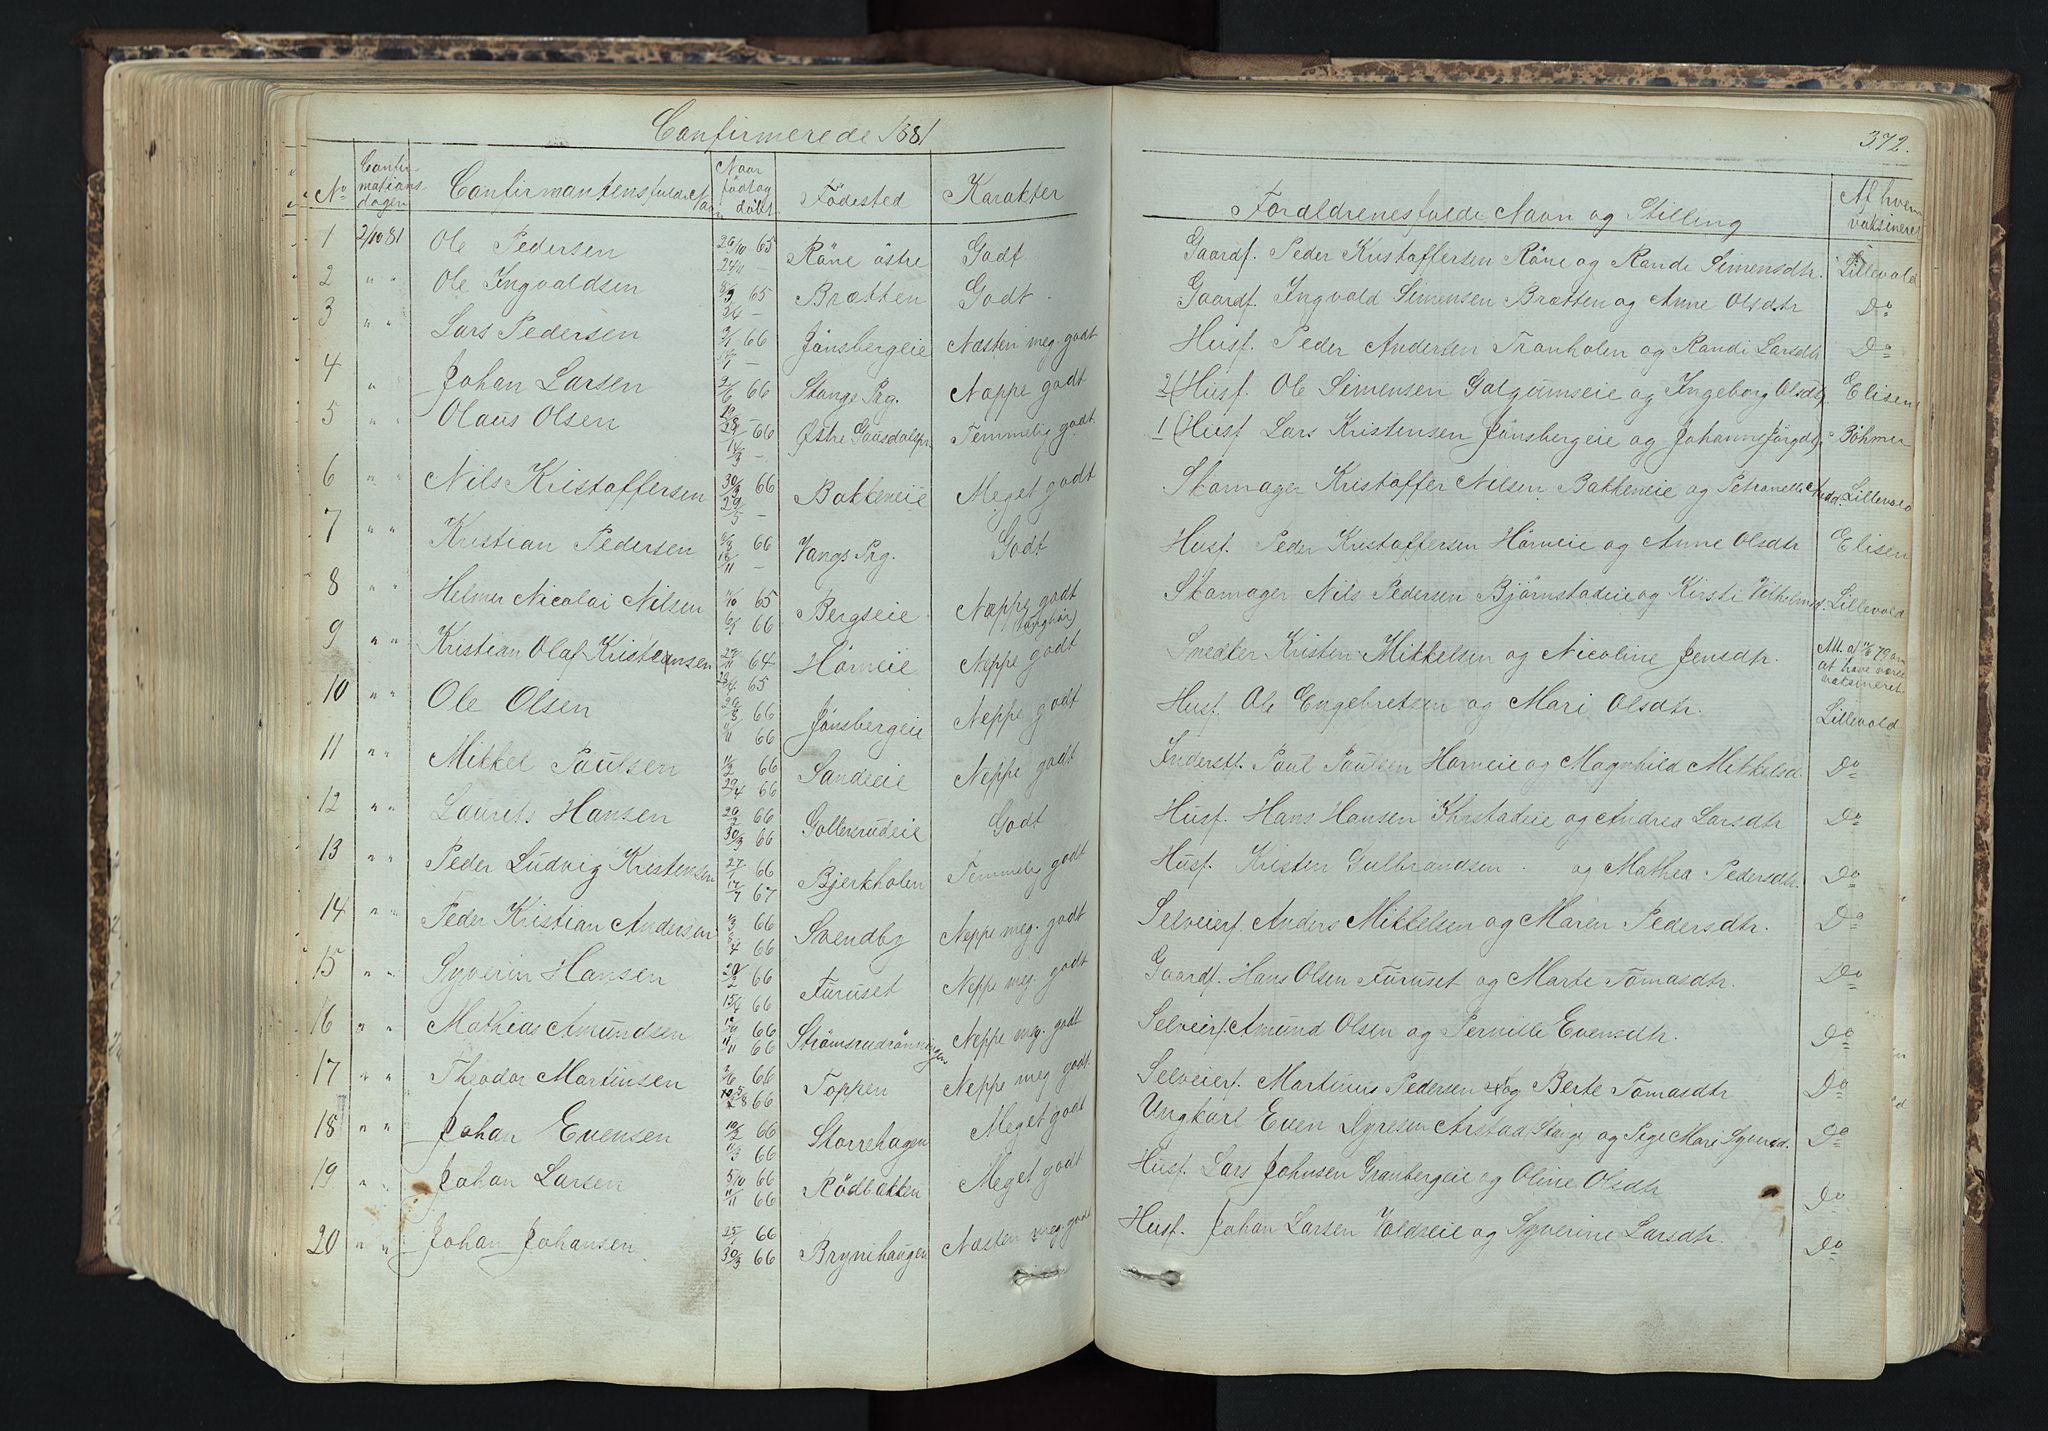 Confirmerede 1881
372.
No Confirmationsdagen Confirmantens fulde Navn Naar født og døbt Födested Karakter Forældrenes fulde Navn og Stilling Af hvem vaksineret
1 2/10 81 Ole Pedersen 65 Röne östre Godt Gaardf. Peder Kristoffersen Röne og Randi Simensdtr. Lillevold
2 " " Ole Ingvaldsen 65 Brætten Godt Gaardf. Ingvald Simensen Brætten og Anne Olsdtr Do
3 " " Lars Pedersen 66 Jönsbergeie Næsten meg. godt Husf. Peder Andersen Tranholen og Randi Larsdtr Do
4 " Johan Larsen 66 Stange Prg. Neppe godt 2) Husf. Ole Simensen Galgumseie og Ingeborg Olsdtr. Elisen
5 " " Olaus Olsen 66 Østre Gausdals pr Temmelig godt 1) Husf Lars Kristensen Jönsbergeie og Böhmer
6 " " Nils Kristoffersen 30/3 66 29/5 Bakkeneie Meget godt Skomager Kristoffer Nilsen Bakkeneie og Petronelle Lillevold
7 " " Kristian Pedersen 66 Vangs Prg. Godt Husf. Peder Kristoffersen Hörneie og Anne Olsdtr Elisen
8 " " Helmer Nicolai Nilsen 65 66 Bergseie Næppe godt Skomager Nils Pedersen Björnstadeie og Kirsti Vilhelmsd. Lillevold
9 " " Kristian Olaf Kristiansen 64 65 Hörneie Neppe godt Snedker Kristen Mikkelsen og Nicoline Jensdtr. Att. at have været vaksineret
10 " " Ole Olsen 66 66 Jönsbergeie Neppe godt Husf. Ole Engebretsen og Mari Olsdtr. Lillevold
11 " " Mikkel Paulsen 66 29/4 66 Sandeeie Neppe godt Inderstf. Paul Paulsen Horneie og Magnhild Mikkelsd. Do
12 " " Laurits Hansen 66 30/3 66 Gollersrudeie Godt Husf. Hans Hansen og Andrea Larsdtr Do
13 " " Peder Ludvig Kristensen 66 17/7 67 Bjerkholen Temmelig godt Husf. Kristen Gulbrandsen og Mathea Pedersdtr. Do
14 " " Peder Kristian Andersen 66 66 Svendby Neppe meg. godt Selveierf. Anders Mikkelsen og Maren Pedersdtr. Do
15 " " Syverin Hansen 66 66 Furuset Neppe meg. godt Gaardf. Hans Olsen Furuset og Marte Tomasdtr. Do
16 " " Mathias Amundsen 66 11/11 66 Strömsrudrönningen Neppe meg. godt Selveierf. Amund Olsen og Pernille Evensdtr. Do
17 " " Theodor Martinsen 66 66 Toppen Neppe meg godt Selveierf. Martinus Pedersen og Berte Tomasdtr Do
18 " " Johan Evensen 66 66 Storrehagen Meget godt Ungkarl Even Dyresen Arstad, Stange og Pige Mari Syversd. Do
19 " " Johan Larsen 5/10 66 66 Rödbakken Meget godt Husf. Lars Johnsen Granbergeie og Oline Olsdtr Do
20 " " Johan Johansen 66 30/3 66 Brynihaugen Næsten meg. godt Husf. Johan Larsen Voldseie og Syverine Larsdtr. Do